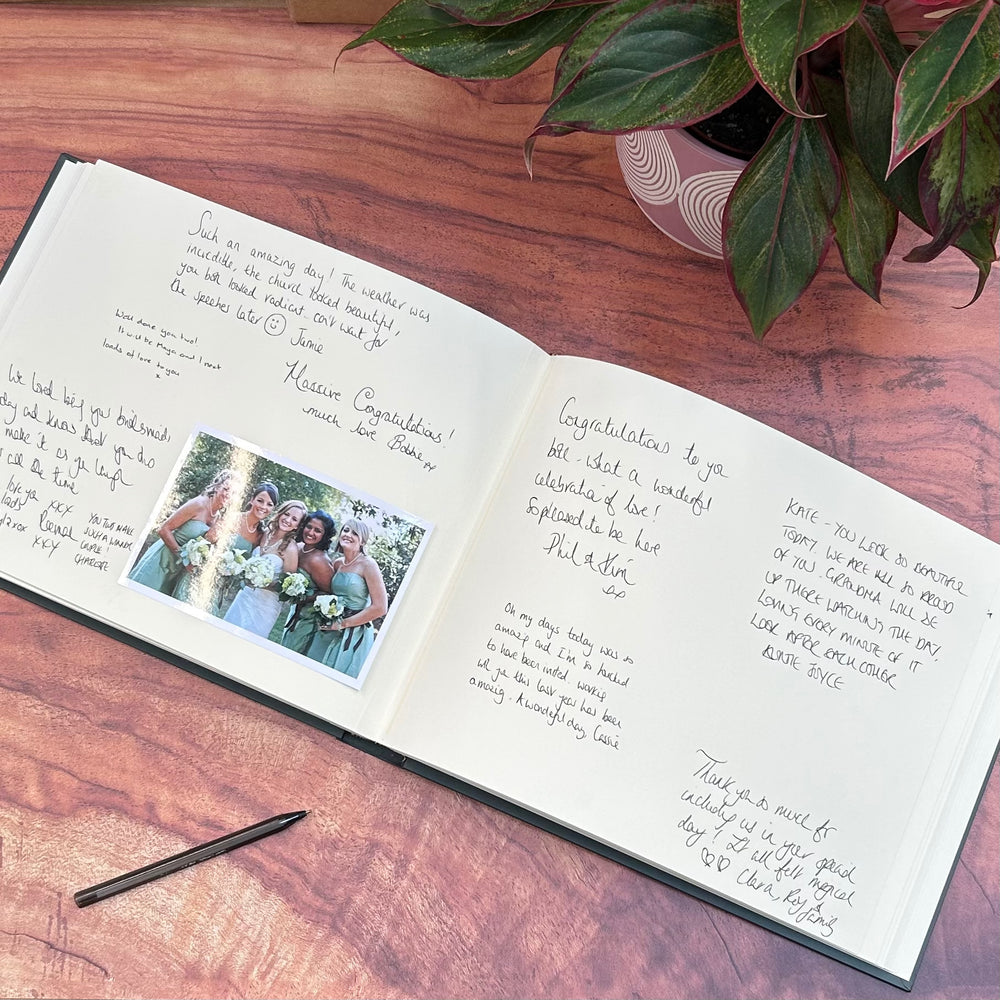 Such an amazing day! The weather was
incredible, the church looked beautiful,
you both looked radiant. can't wait for
the speeches later Jamie
Well done you two!
It will be Maya and I next
loads of love to you
x
Massive Congratulations!
much love Bobbie xx
We loved being your bridesmaids
day and know that you two
make it as you laugh
all the time
love you xxx
lads
xxx
YOU TWO MAKE
SUCH A WINNER
COUPLE!
CHARLOTTE
Congratulations to you
both - what a wonderful
celebration of love!
So pleased to be here
Phil & Kim
xx
Oh my days today was so
amazing and I'm so honoured
to have been invited. working
with you this last year has been
amazing. A wonderful day, Cassie
KATE - YOU LOOK SO BEAUTIFUL
TODAY. WE ARE ALL SO PROUD
OF YOU. GRANDMA WILL BE
UP THERE WATCHING THE DAY,
LOVING EVERY MINUTE OF IT
LOOK AFTER EACH OTHER
AUNTIE JOYCE
Thank you so much for
including us in your special
day! It all felt magical
♡♡ Clara, Roy &
family